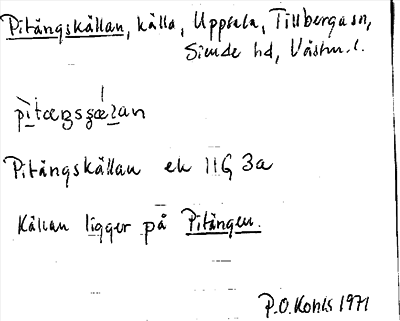 Pitångskällan, källa, Uppsala, Tillberga sn,
Simde hd, Västm. l.
Pitångskällan ek 11G 3a
Källan ligger på Pitången.
P.O. Kohls 1971